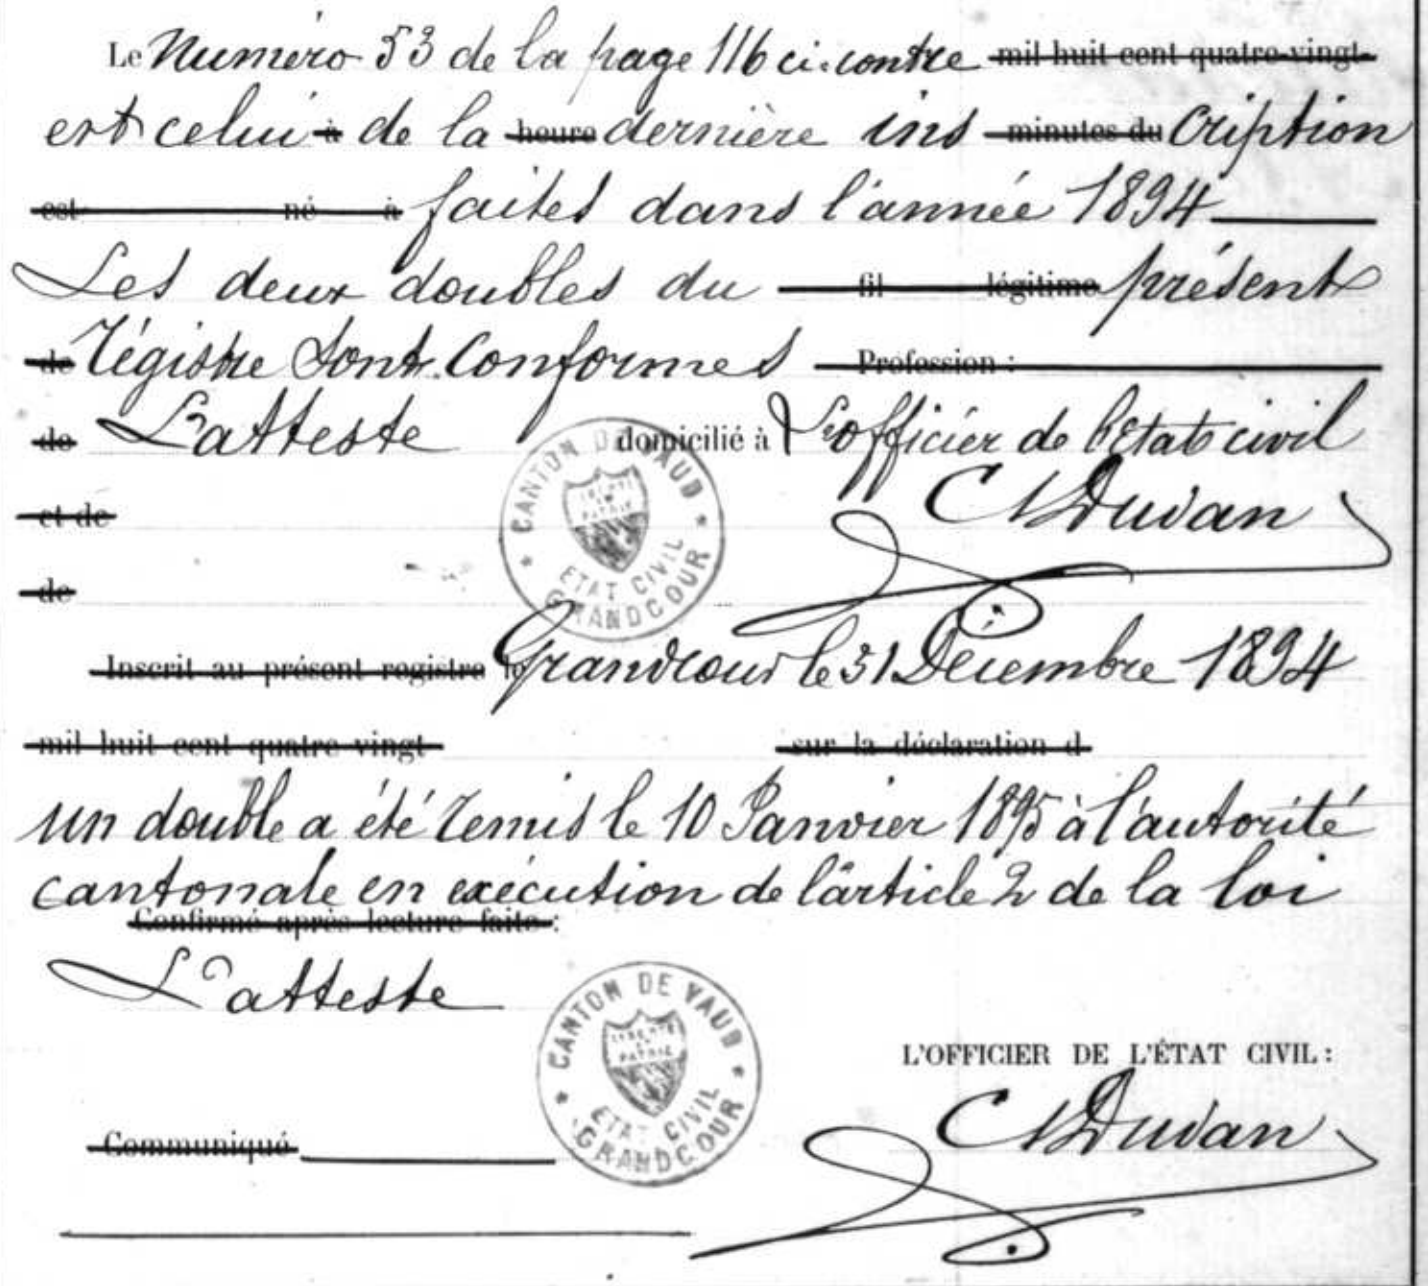 Le Numéro 53 de la page 116 ci-contre mil huit cent quatre-vingt-
est celui à de la heure dernière ins minutes du cription
est né à faites dans l'année 1894
Les deux doubles du fil légitime présent
de régistre sont conformes Profession :
de L'atteste domicilié à L'officier de l'Etat civil
et de
de
CANTON DE VAUD
LIBERTÉ
ET
PATRIE
ETAT CIVIL
GRANDCOUR
Inscrit au présent registre le Grandcour le 31 Décembre 1894
mil huit cent quatre-vingt sur la déclaration d
un double a été remis le 10 Janvier 1895 à l'autorité
cantonale en exécution de l'article 2 de la loi
Confirmé après lecture faite :
L'atteste
CANTON DE VAUD
LIBERTÉ
ET
PATRIE
ETAT CIVIL
GRANDCOUR
L'OFFICIER DE L'ÉTAT CIVIL :
Communiqué